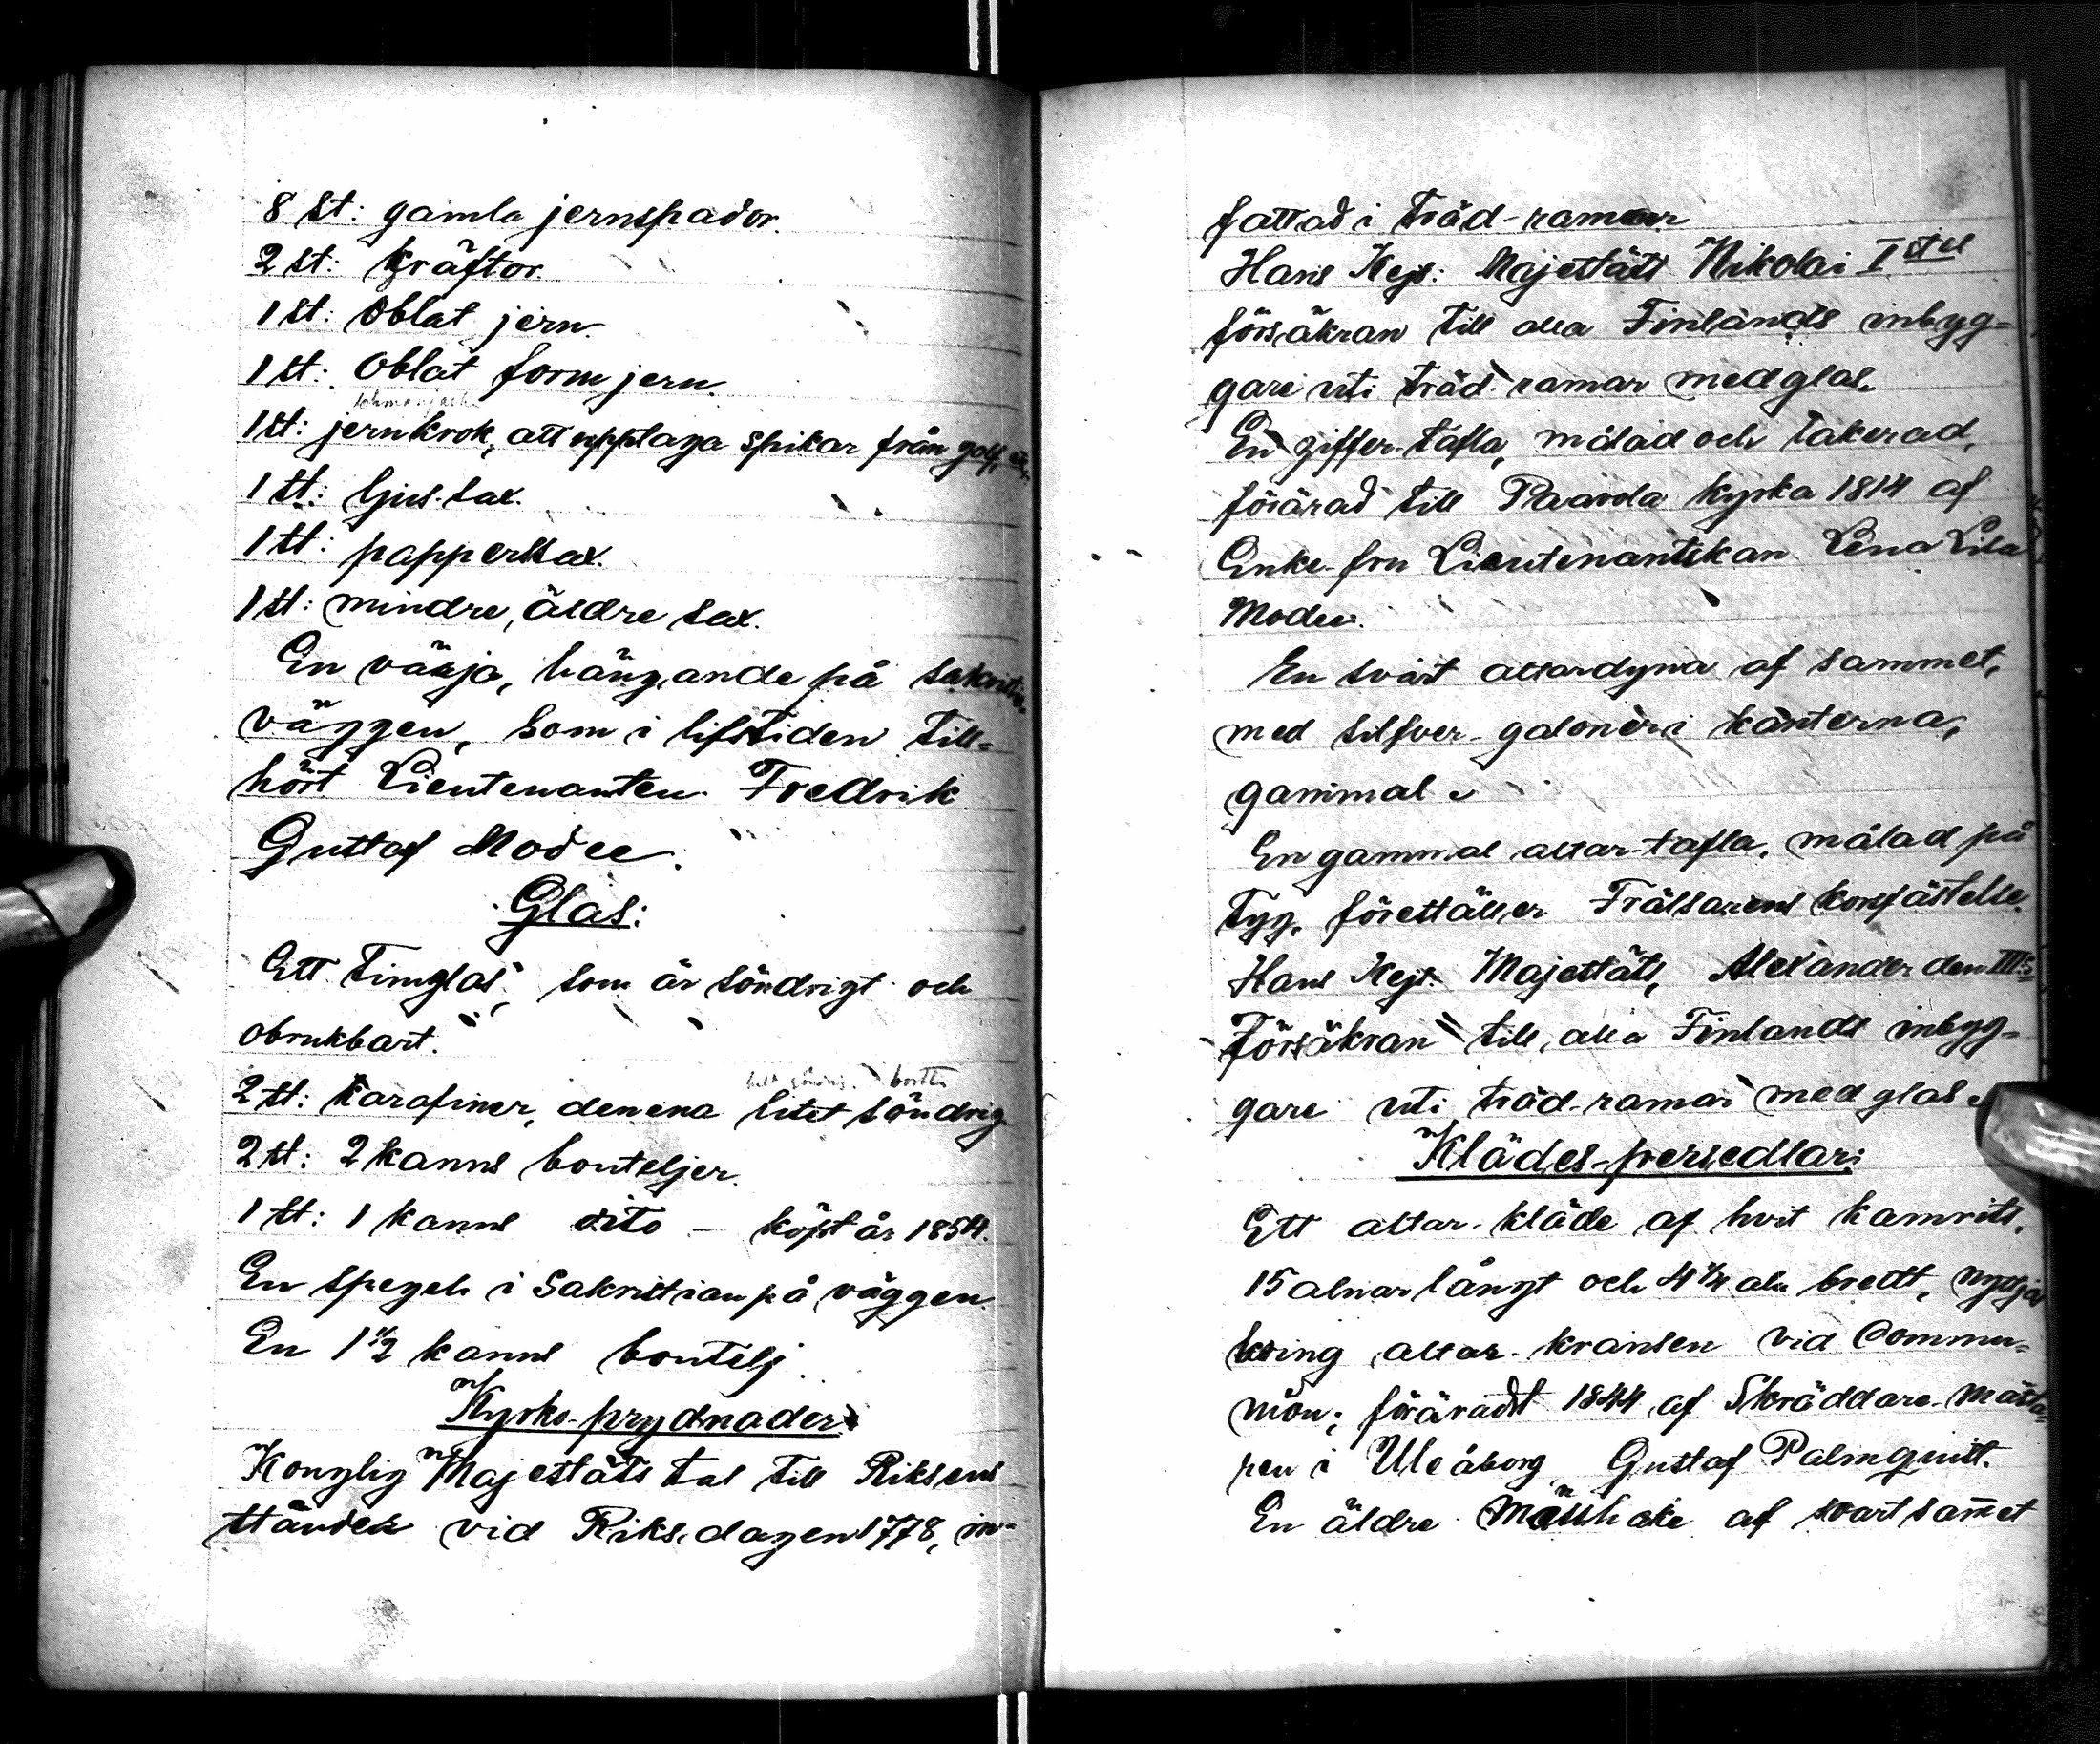 8 st: gamla jernspador.
2 st: kräftor.
1 st: Oblat jern.
1 st: Oblat form jern.
1 st: jernkrok, att upptaga spikar från golf,
1 st: ljus-sax.
1 st: papperssax.
1 st: mindre, äldre sax.
En värja, hängande på
väggen, som i lifstiden till-
hört Lieutenanten Fredrik
Gustaf Modee.
Glas:
Ett timglas, som är söndrigt och
obrukbart.
2 st: karafiner, den ena litet söndrig
2 st: 2 kanns bouteljer.
1 st: 1 kanns dito – köpt år 1854.
En spegel i Sakristian på väggen.
En 1 1/2 kanns boutelj.
Kyrko-prydnader
Konglig Majestäts tal till Riksens
ständer vid Riksdagen 1778, in-
fattad i träd-ramar
Hans Kejs: Majestäts Nikolai I stes
försäkran till alla Finlands inbyg-
gare uti träd-ramar med glas.
En ziffer-tafla, målad och lakerad,
förärad till Paavola kyrka 1814 af
Enke-fru Lieutenantskan Lena Lisa
Modee.
En svart altardyna af sammet,
med silfver-galoner i kanterna,
gammal.
En gammal altar-tafla, målad på
tyg, föreställer Frälsarens korsfästelse.
Hans Kejs. Majestäts, Alexander den III:s
Försäkran till alla Finlands inbyg-
gare uti träd-ramar med glas.
Klädes-persedlar:
Ett altar-kläde af hvit kamrits,
15 alnar långt och 4 1/4 aln bredt,
kring altar-kransen vid Commu-
nion; föräradt 1844 af Skräddare-mästa-
ren i Uleåborg Gustaf Palmquist.
En äldre Mässhake af svart sam̄et